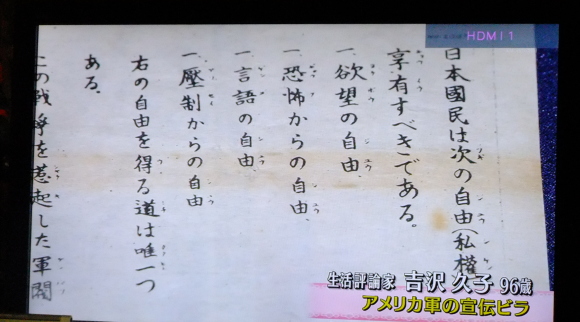 HDMI 1
日本國民は次の自由(私權
享有すべきである。
一、欲望の自由
一、恐怖からの自由
一、言語の自由
一、壓制からの自由
右の自由を得る道は唯一つ
ある。
この戰爭を惹起した軍閥
生活評論家 吉沢 久子 96歳
アメリカ軍の宣伝ビラ